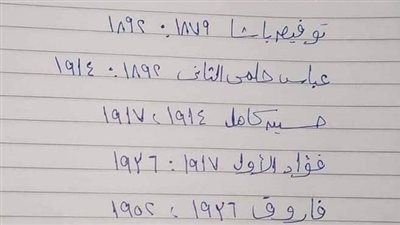 توفيق باشا ١٨٧٩ : ١٨٩٢
عباس حلمى الثانى ١٨٩٢ : ١٩١٤
حسين كامل ١٩١٤ : ١٩١٧
فؤاد الأول ١٩١٧ : ١٩٢٦
فاروق ١٩٢٦ : ١٩٥٢